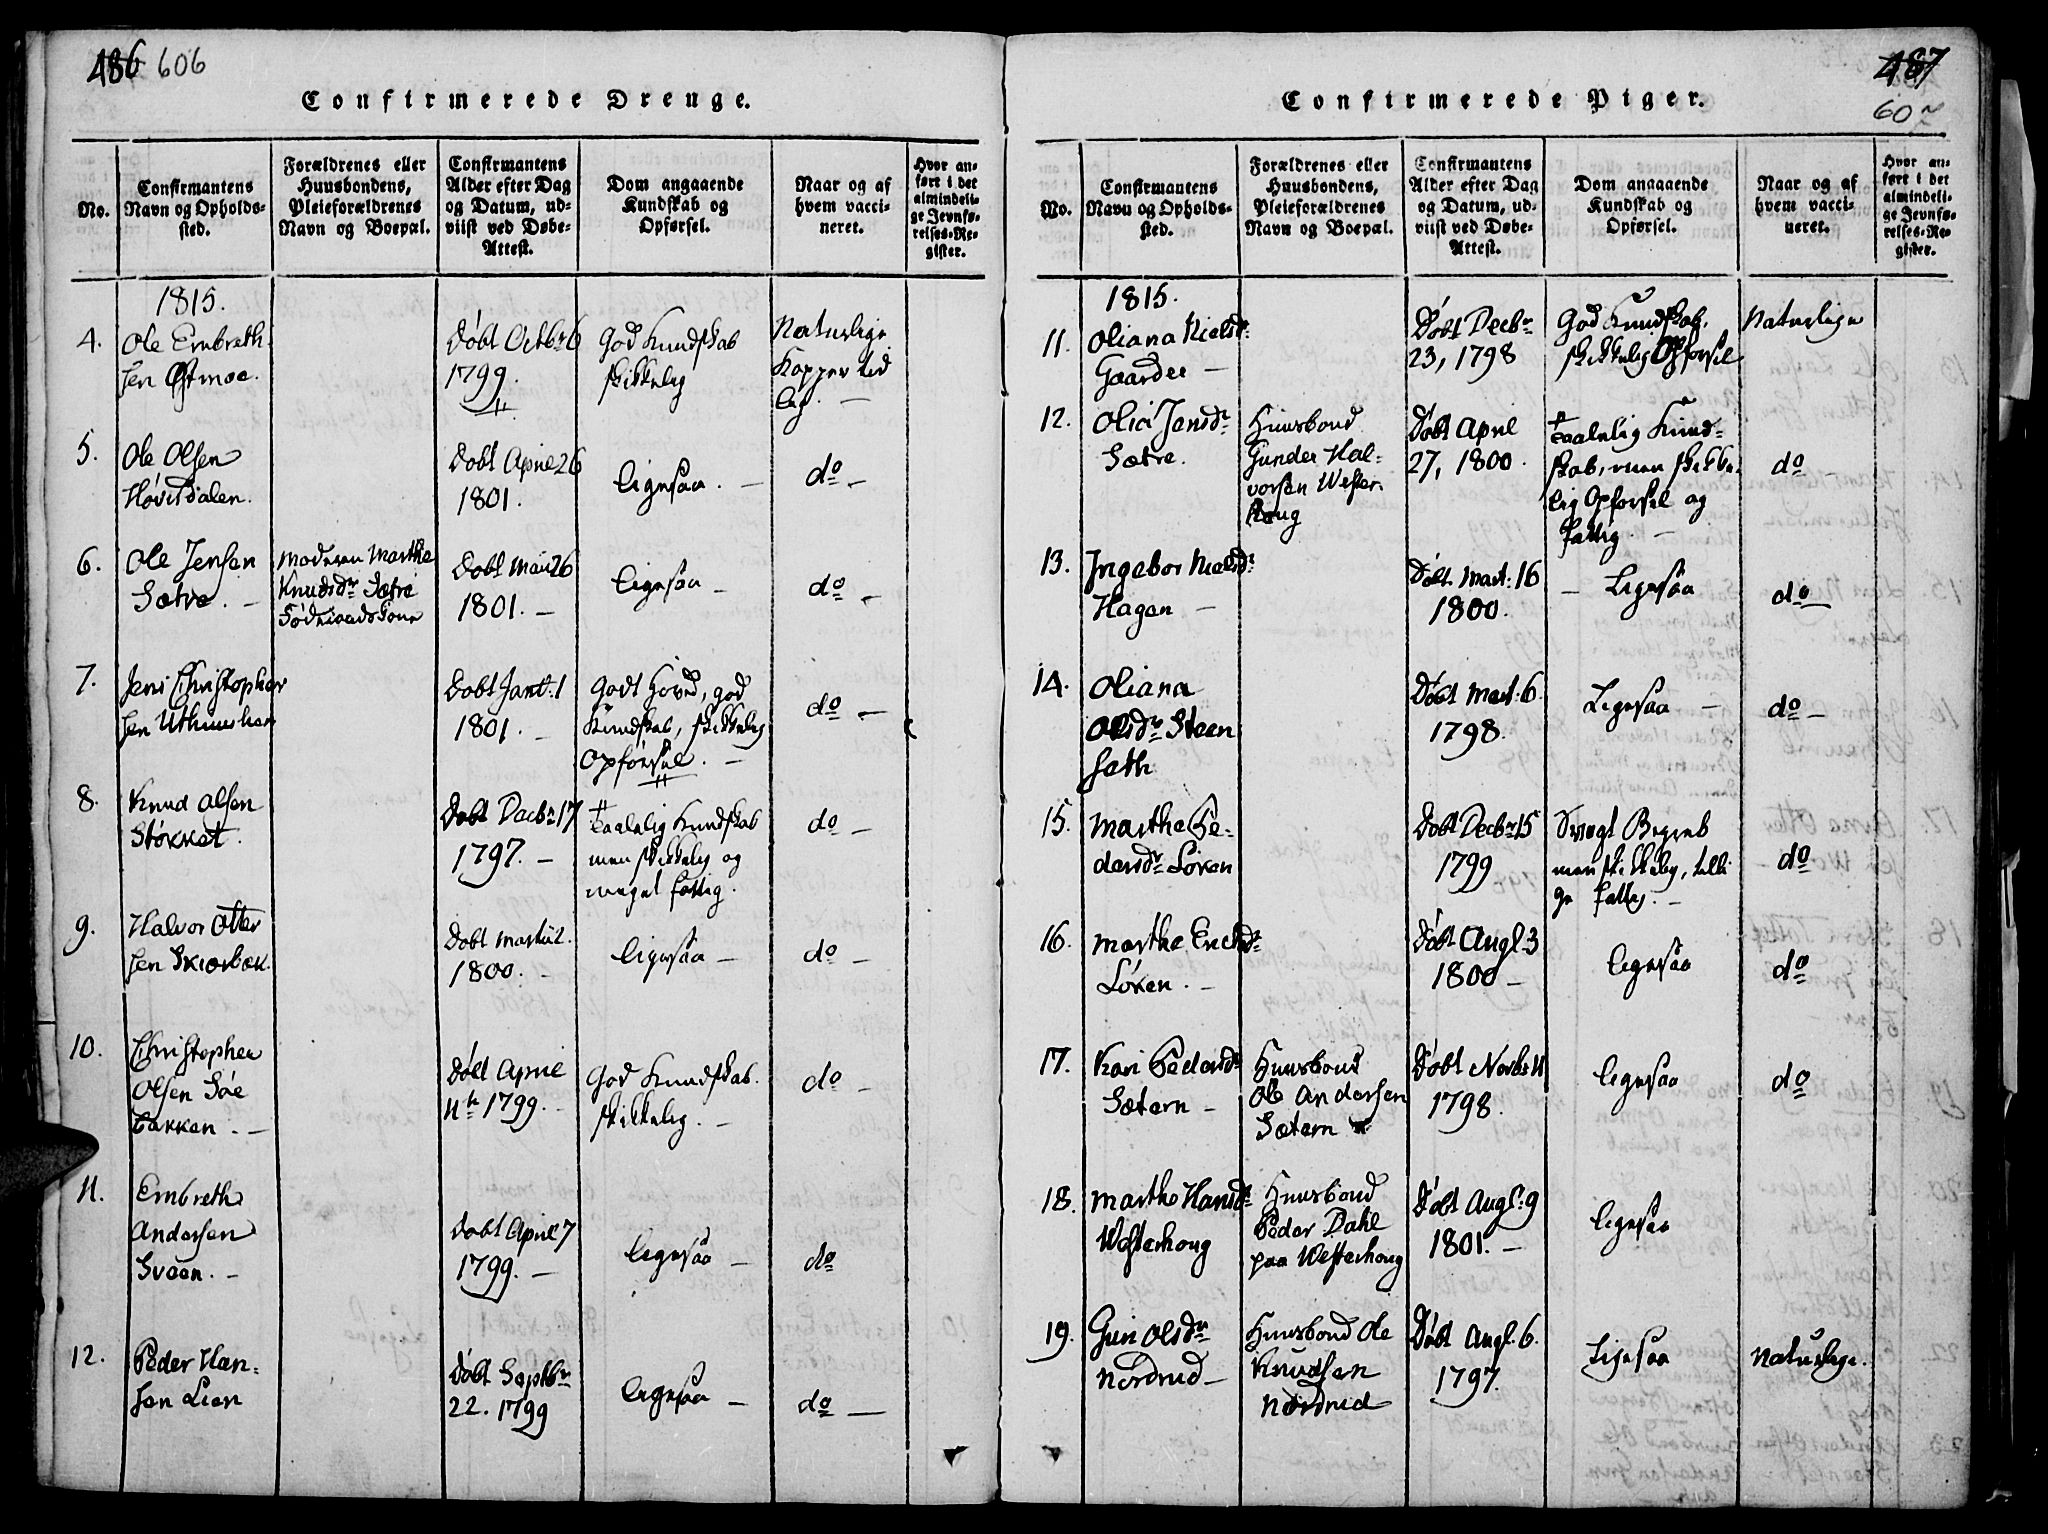 486 606
Confirmerede Drenge.
No.
Confirmantens
Navn og Opholds-
sted.
Forældrenes eller
Huusbondens,
Pleieforældrenes
Navn og Boepæl.
Confirmantens
Alder efter Dag
og Datum, ud-
viist ved Døbe-
Attest.
Dom angaaende
Kundskab og
Opførsel.
Naar og af
hvem vacci-
neret.
Hvor an-
ført i det
almindeli-
ge Jevnfø-
relses-Re-
gister.
1815.
4.
Ole Embreth
sen Østmoe.
Døbt Octbr 6
1799.
God Kundskab
skikkelig
Naturlige
Kopper
5.
Ole Olsen
Døbt April 26
1801.
ligesaa. -
do -
6.
Ole Jensen
Sætre. -
Moderen Marthe
Knudsdr Sætre
Døbt Maii 26
1801. -
ligesaa -
do -
7.
Jens Christopher
sen
Døbt Janr: 1
1801. -
Godt Hoved, god
Kundskab, skikkelig
Opførsel. -
do -
8.
Knud Olsen
Støkket.
Døbt Decbr 17
1797. -
Taalelig Kundskab
men skikkelig og
meget fattig.
do -
9.
Halvor Otter
sen Skiærbæk.
Døbt Martii 2.
1800. -
ligesaa -
do -
10.
Christopher
Olsen Søe
bakken. -
Døbt April
11te 1799. -
God Kundskab.
skikkelig. -
do -
11.
Embreth
Andersen
Sveen. -
Døbt April 7
1799. -
ligesaa -
do
12.
Peder Han-
sen Lien
Døbt Septbr
22. 1799
ligesaa -
do -
487
607
Confirmerede Piger.
No.
Confirmantens
Navn og Opholds-
sted.
Forældrenes eller
Huusbondens,
Pleieforældrenes
Navn og Boepæl.
Confirmantens
Alder efter Dag
og Datum, ud-
viist ved Døbe-
Attest.
Dom angaaende
Kundskab og
Opførsel.
Naar og af
hvem vacci-
neret.
Hvor an-
ført i det
almindeli-
ge Jevnfø-
relses-Re-
gister.
1815.
11.
Oliana Nielsdr
Gaarder -
Døbt Decbr
23, 1798
God Kundskab.
skikkelig Opførsel
Naturlige
12.
Olia Jensdr
Sætre.
Huusbond
Gunder Hal-
vorsen Wester-
houg
Døbt April
27, 1800.
Taalelig Kund-
skab, men skikke-
lig Opførsel og
fattig. -
do -
13.
Ingebor Nielsdr
Hagen -
Døbt Mart: 16
1800.
- Ligesaa
do -
14.
Oliana
Olsdr Steen
seth
Døbt Mart: 6.
1798.
Ligesaa -
do -
15.
Marthe Pe-
dersdr Løken
Døbt Decbr 15
1799
Svagt Begreb
men skikkelig, till
ge fattig. -
do
16.
Marthe Ericksdr
Løken. -
Døbt Augl. 3
1800 -
ligesaa
do
17.
Kari Pedersdr
Sætern -
Huusbond
Ole Andersen
Sætern
Døbt Novbr 11
1798.
ligesaa
do
18.
Marthe Hansdr
Westerhoug
Huusbond
Peder Dahl
paa Westerhoug
Døbt Augl. 9
1801. -
ligesaa
19.
Guri Olsdr
Nordrud -
Huusbond Ole
Knudsen
Nordrud
Døbt Augl. 6.
1797.
Ligesaa
Naturlige.